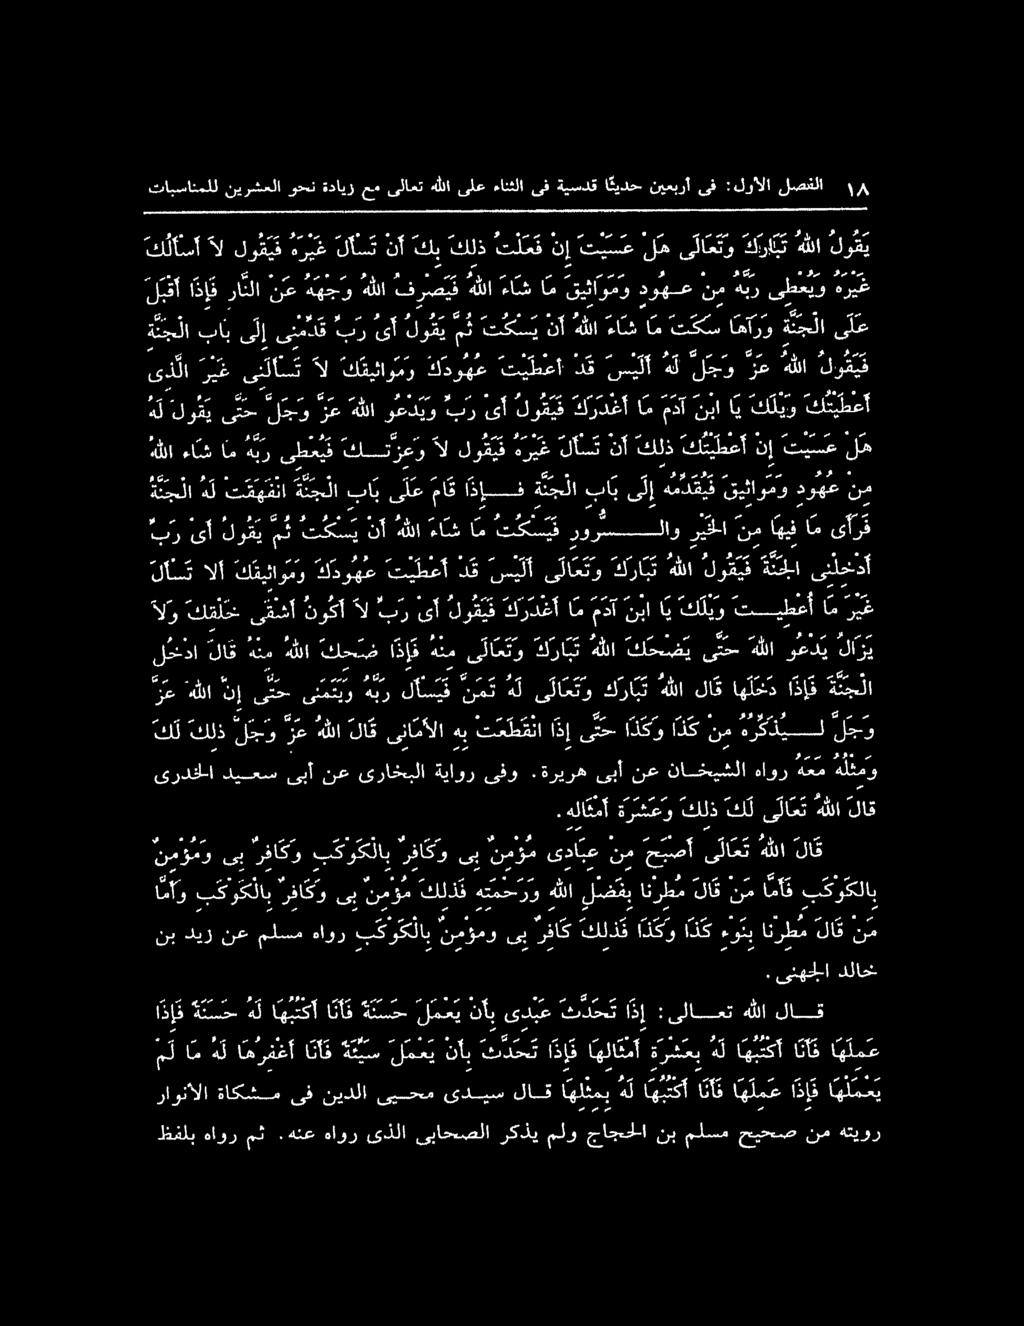 ١٨ الفصل الأول: فى أربعين حديثًا قدسية فى الثناء على الله تعالى مع زيادة نحو العشرين للمناسبات
يَقُولُ اللهُ تَبَارَكَ وَتَعَالَى هَلْ عَسَيْتَ إِنْ فَعَلْتُ ذلِكَ بِكَ أَنْ تَسْأَلَ غَيْرَهُ فَيَقُول لاَ أسأَلُكَ
غَيْرَهُ وَيُعْطِى رَبَّهُ مِنْ عـهُودٍ وَمَوَاثِيقَ مَا شَاءَ اللهُ فَيَصْرِفُ اللهُ وَجْهَهُ عَنْ النَّارِ فَإِذَا أَقْبَلَ
عَلَى الْجَنَّةِ وَرَآهَا سَكَتَ مَا شَاءَ اللهُ أَنْ يَسْكُتَ ثُمَّ يَقُولُ أَىْ رَبِّ قَدِّمْنِى إِلَى بَابِ الْجَنَّةِ
فَيَقُولُ اللهُ عَزَّ وَجَلَّ لَهُ أَلَيْسَ قَدْ أَعْطَيْتَ عُهُودَكَ وَمَوَاثِيقَكَ لاَ تَسْأَلُنِى غَيْرَ الَّذِى
أَعْطَيْتُكَ وَيْلَكَ يَا ابْنَ آدَمَ مَا أَغْدَرَكَ فَيَقُولُ أَىْ رَبِّ وَيَدْعُو اللهَ عَزَّ وَجَلَّ حَتَّى يَقُولَ لَهُ
هَلْ عَسَيْتَ إِنْ أَعْطَيْتُكَ ذلِكَ أَنْ تَسْأَلَ غَيْرَهُ فَيَقُول لاَ وَعِزَّتـكَ فَيُعْطِى رَبَّهُ مَا شَاءَ اللهُ
مِنْ عُهُودٍ وَمَوَاثِيقَ فَيُقَدِّمُهُ إِلَى بَابِ الْجَنَّةِ فـإِذَا قَامَ عَلَى بَابِ الْجَنَّةَ انْفَهَقَتْ لَهُ الْجَنَّةُ
فَرَأَى مَا فِيهَا مِنَ الْخَيْرِ والـسُّرُورِ فَيَسْكُتُ مَا شَاءَ اللهُ أَنْ يَسْكُتَ ثُمَّ يَقُولُ أَىْ رَبِّ
أَدْخِلْنِى الْجَنَّةَ فَيَقُولُ اللهُ تَبَارَكَ وَتَعَالَى أَلَيْسَ قَدْ أَعْطَيْتَ عُهُودَكَ وَمَوَاثِيقَكَ ألا تَسْأَلَ
غَيْرَ مَا أُعْطِيـتَ وَيْلَكَ يَا ابْنَ آدَمَ مَا أَغْدَرَكَ فَيَقُولُ أَىْ رَبِّ لاَ أَكُونُ أَشْقَى خَلْقِكَ وَلاَ
يَزَالُ يَدْعُو اللهَ حَتَّى يَضْحَكَ اللهُ تَبَارَكَ وَتَعَالَى مِنْهُ فَإِذَا ضَحِكَ اللهُ مِنْهُ قَالَ ادْخُلِ
الْجَنَّةَ فَإِذَا دَخَلَهَا قَال اللهُ تَبَارَكَ وَتَعَالَى لَهُ تَمَنَّ فَيَسأل رَبَّهُ وَيَتَمَنَى حَتَّى إِنْ اللهَ عَزَّ
وَجَلَّ لـيُذَكِّرُهُ مِنْ كَذَا وَكَذَا حَتَّى إِذَا انْقَطَعَتْ بِهِ الأَمَانِى قَالَ اللهُ عَزَّ وَجَلَّ ذلِكَ لَكَ
وَمِثْلُهُ مَعَهُ رواه الشيخـان عن أبى هريرة. وفى رواية البخارى عن أبى سعـيد الخدرى
قَالَ اللهُ تَعَالَى لَكَ ذلِكَ وَعَشَرَة أَمْثَالِهِ.
قَالَ اللهُ تَعَالَى أَصْبَحَ مِنْ عِبَادِى مُؤْمِنٌ بِى وَكَافِرٌ بِالْكَوْكَبِ وَكَافِرٌ بِى وَمُؤْمِنٌ
بِالكَوْكَبِ فَأَمَّا مَنْ قَالَ مُطِرْنَا بِفَضْلِ اللهِ وَرَحْمَتِهِ فَذلِكَ مُؤْمِنٌ بِى وَكَافِرٌ بِالْكَوْكَبِ وَأَمَّا
مَنْ قَالَ مُطِرْنَا بِنَوْءِ كَذَا وَكَذَا فَذلِكَ كَافِرٌ بِى ومؤمِنٌ بِالْكَوْكَبِ رواه مسلم عن زيد بن
خالد الجهنى.
قـال الله تعـالى: إِذَا تَحَدَّثَ عَبْدِى بِأَنْ يَعْمَلَ حَسَنَةً فَأَنَا أَكْتُبُهَا لَهُ حَسَنَةً فَإِذَا
عَمِلَهَا فَأَنَا أَكْتُبُهَا لَهُ بِعَشْرَةِ أَمْثَالِهَا فَإِذَا تَحَدَّثَ بِأَنْ يَعْمَلَ سَيِّئَةً فَأَنَا أَغْفِرُهَا لَهُ مَا لَمْ
يَعْمَلْهَا فَإِذَا عَمِلَهَا فَأَنَا أَكْتُبُهَا لَهُ بِمِثْلِهَا قـال سيـدى محـيى الدين فى مـشكاة الأنوار
رويته من صحيح مسلم بن الحجاج ولم يذكر الصحابى الذى رواه عنه. ثم رواه بلفظ